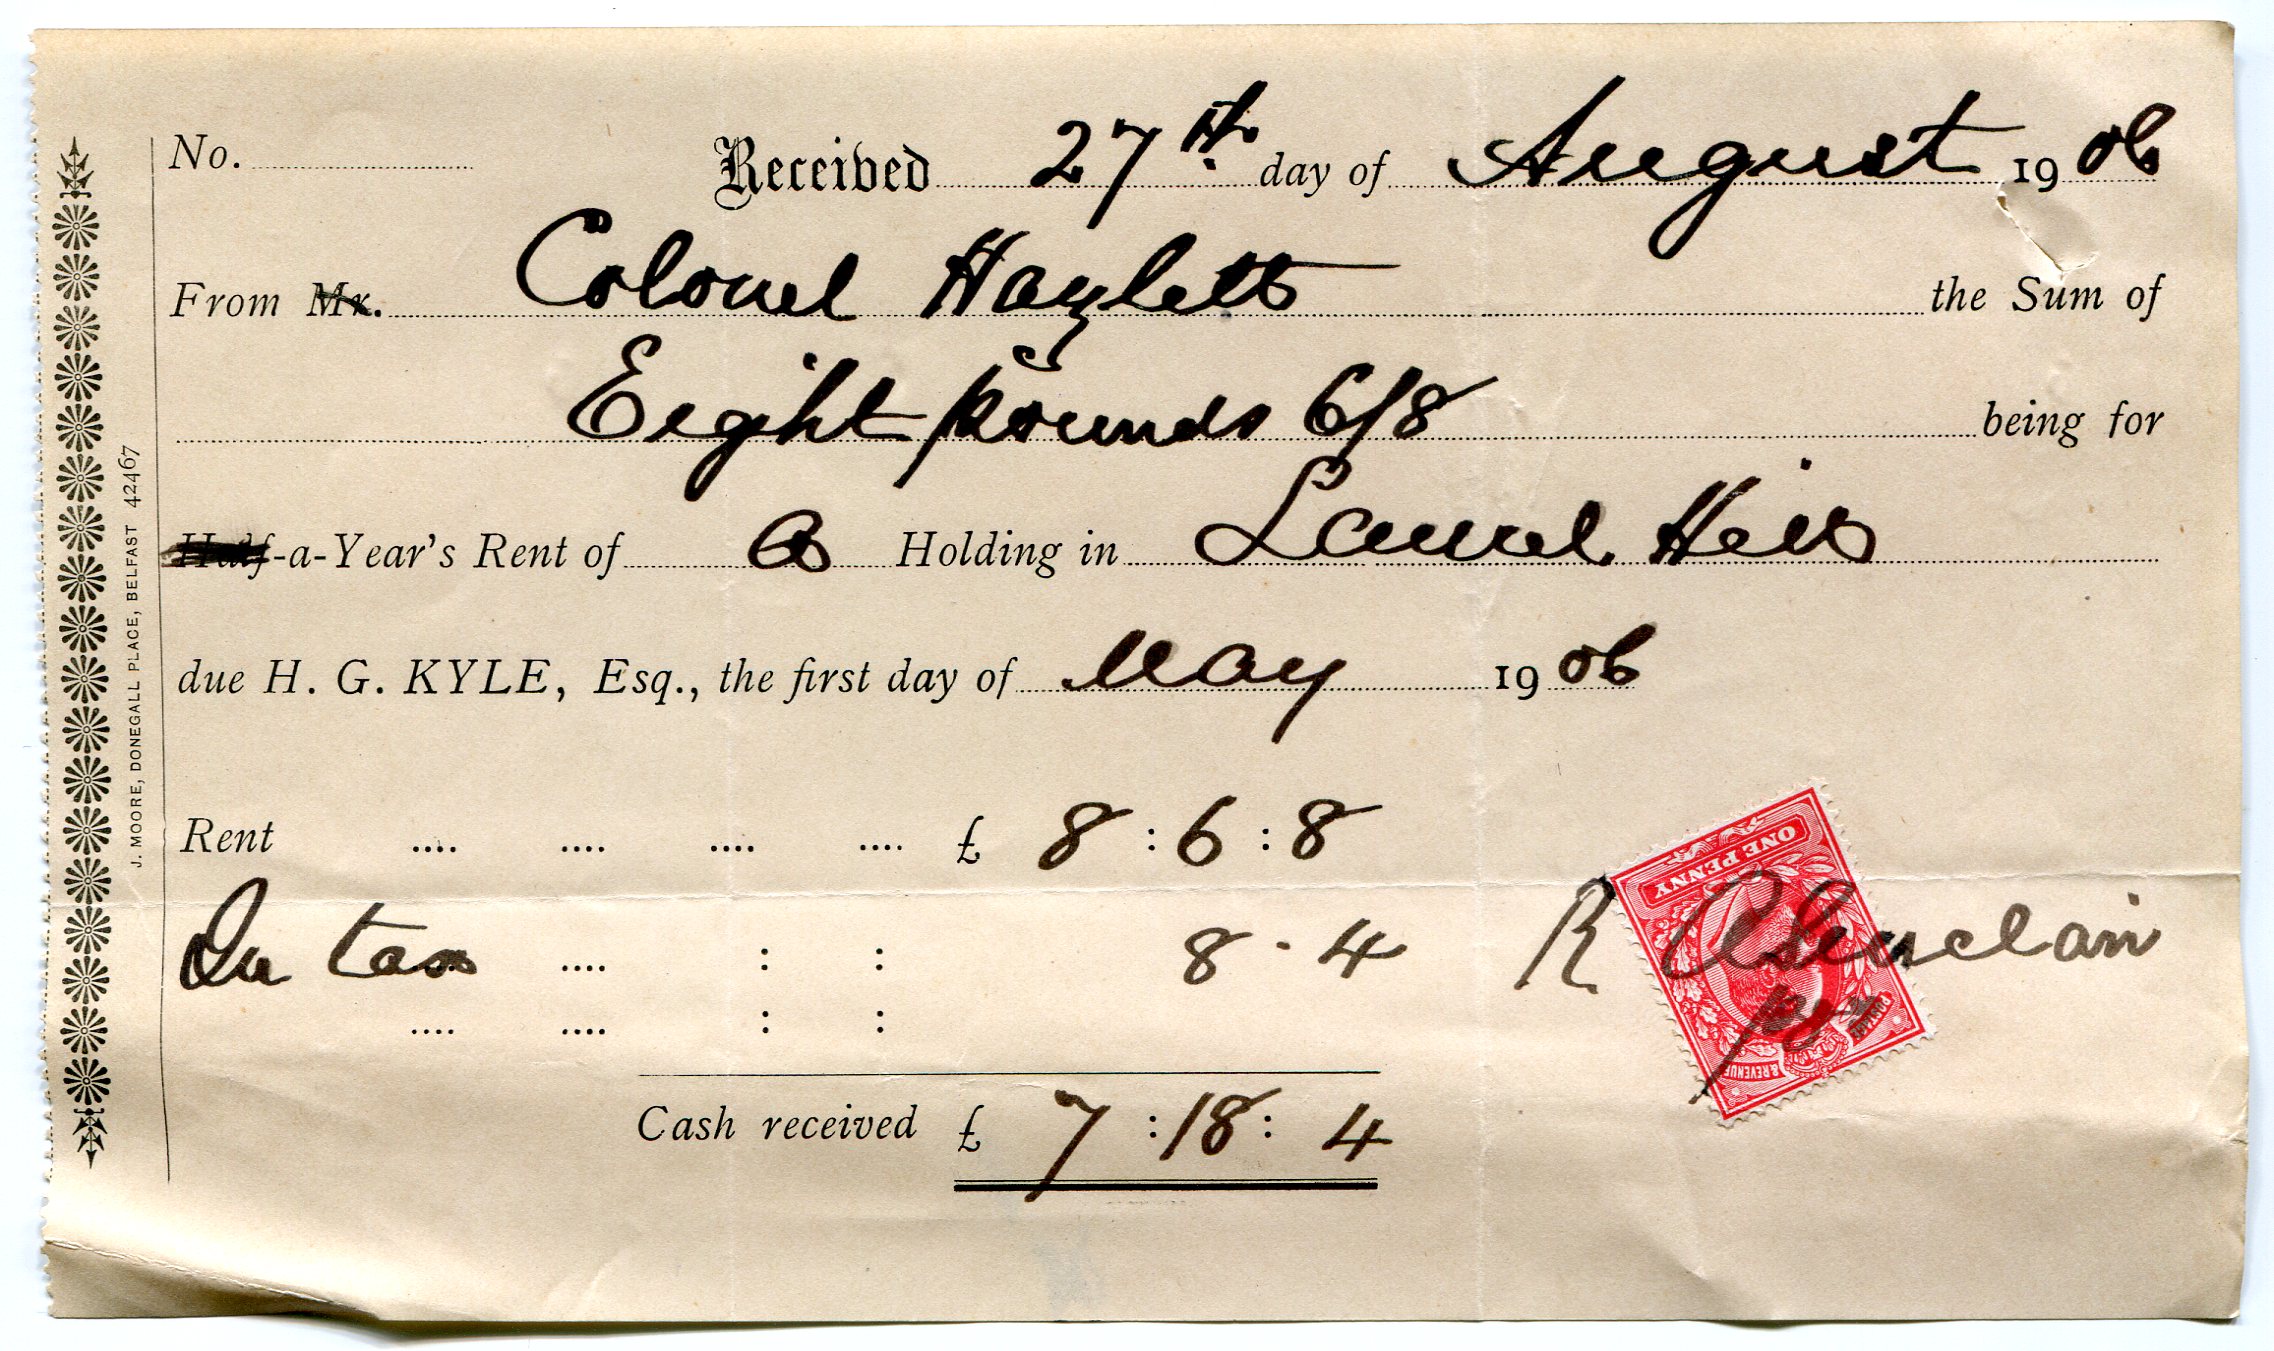 No. Received 27th day of August 1906
From Mr. Colonel Hazlett the Sum of
Eight pounds 6/8 being for
Half-a-Year's Rent of a Holding in Laurel Hill
due H. G. KYLE, Esq., the first day of May 1906
Rent .... .... .... .... £ 8 : 6 : 8
In tax .... : : 8 - 4
.... .... : :
Cash received £ 7 : 18 : 4
R A Sinclair
ONE PENNY
POSTAGE & REVENUE
J. MOORE, DONEGALL PLACE, BELFAST 42467